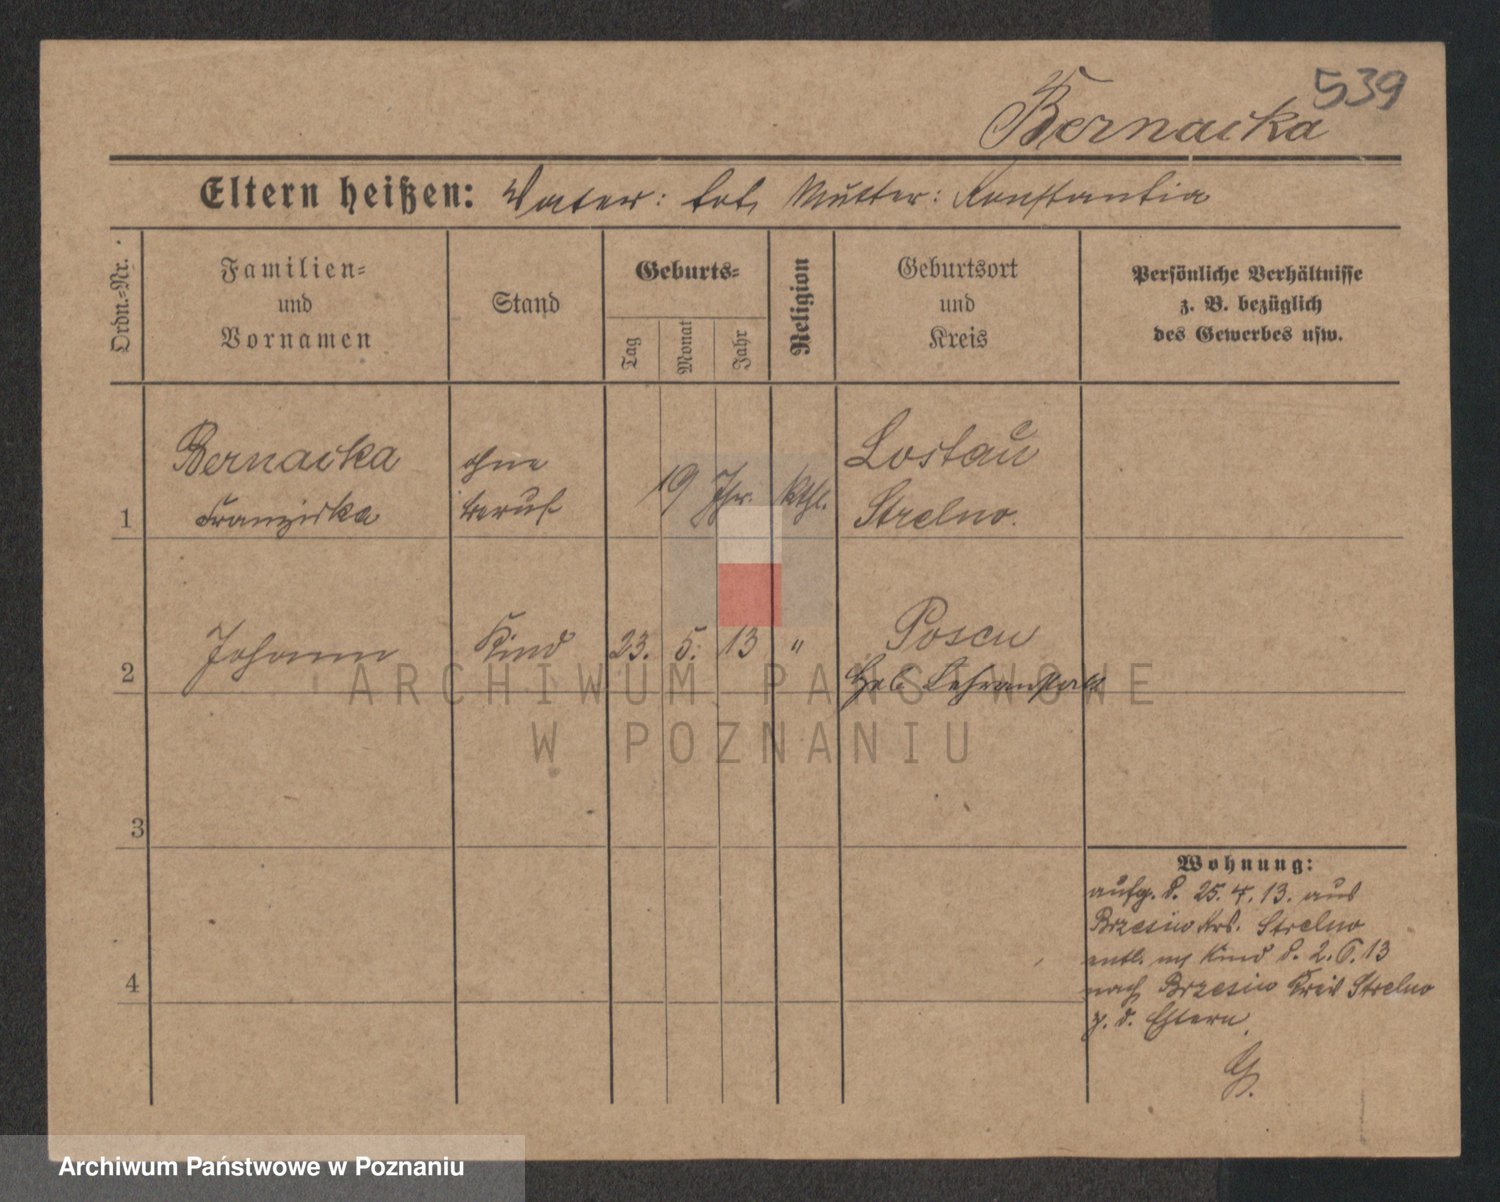 539
Bernacka
Eltern heißen: Vater: tot, Mutter: Konstantia
Ordn.-Nr.
Familien-
und
Vornamen
Stand
Geburts-
Tag
Monat
Jahr
Religion
Geburtsort
und
Kreis
Persönliche Verhältnisse
z. B. bezüglich
des Gewerbes usw.
1
Bernacka
Franziska
ohne
Beruf
19 Jhr.
kthl.
Lostau
Strelno.
2
Johann
Kind
23.
5.
13
"
Posen
Heb. Lehranstalt
ARCHIWUM PAŃSTWOWE
W POZNANIU
3
4
Wohnung:
aufg. d. 25.4.13. aus
Brzesiw Krs. Strelno
entl. m Kind d. 2.6.13
nach Brzesiw Kreis Strelno
z. d. Eltern.
G.
Archiwum Państwowe w Poznaniu